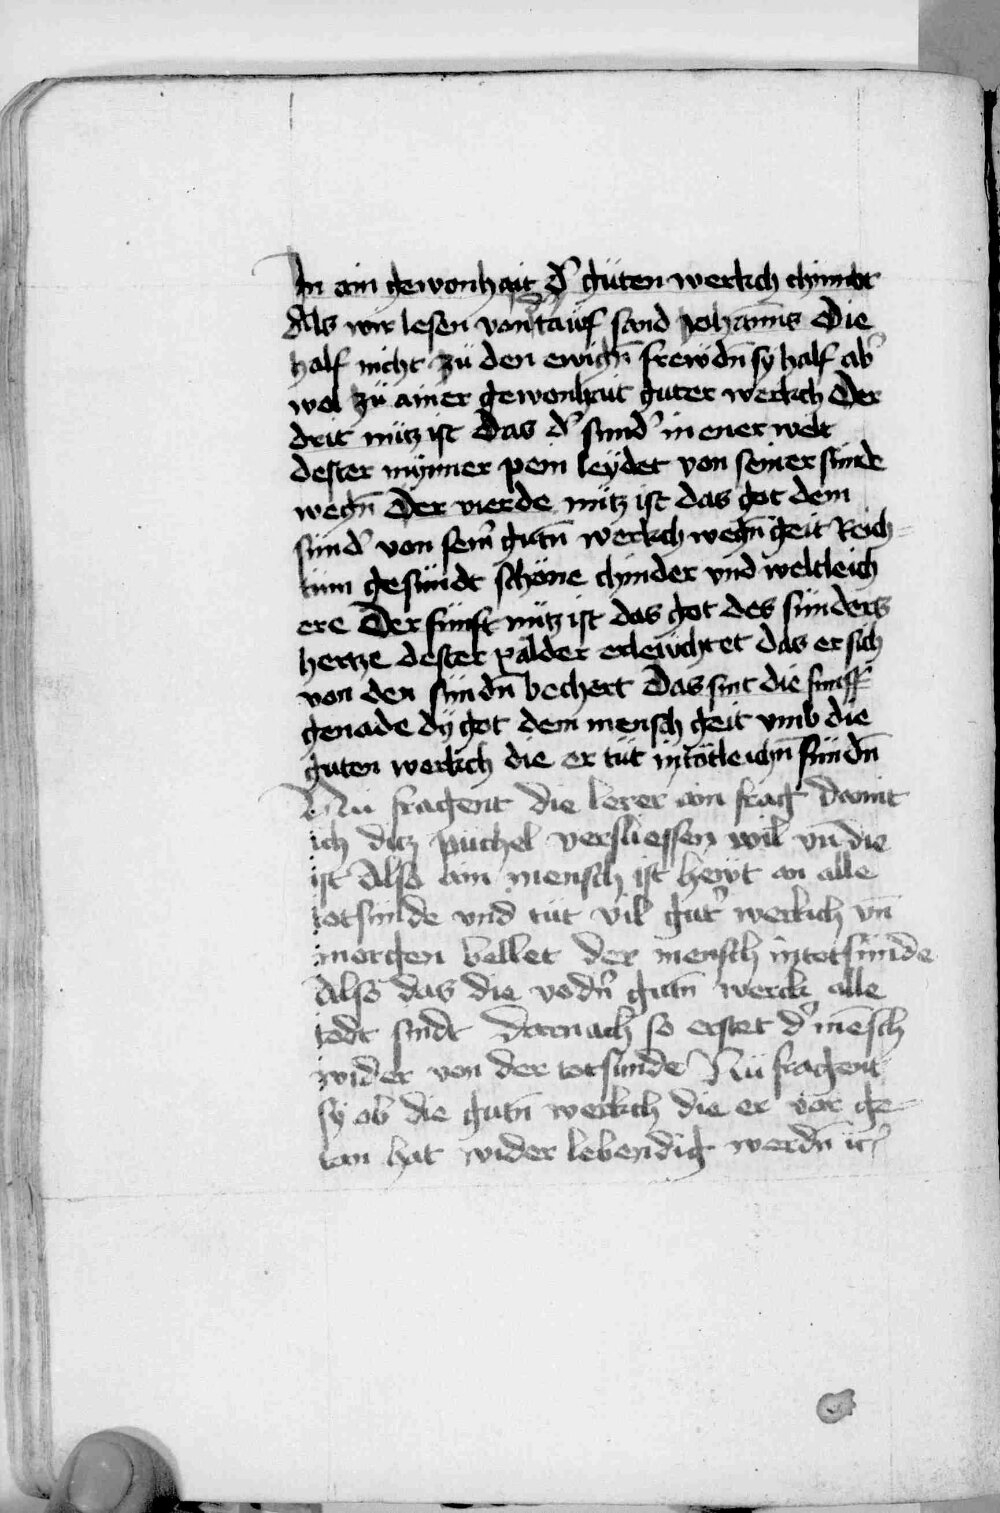 In ain gewonhait d' güten werkch chumbt
Als wir lesen von tauf sand Johanns Die
half nicht zü den ewign̄ frewdn̄ sy half ab'
wol zü ainer gewonhait guter werkch Der
drit nütz ist Das d' sund' in ener welt
dester mynner pein leydet von seiner sünde
wegn̄ Der vierde nütz ist das got dem
sünd' von sein' gutn̄ werkch wegn̄ geit Reich=
tum gesündt schöne chinder vnd weltleich
ere Der fünft nütz ist das got des sünders
hertze dester palder erleuchtet das er sich
von den sündn̄ bechert Das sint die fünff
genade dy got dem mensch geit vmb die
guten werkch die er tüt in tötleichn̄ sündn̄
Nü fragent die lerer ain frag damit
ich ditz püchel versliessen wil vn̄ die
ist Also ain mensch ist hewt an alle
totsünde vnd tüt vil gut' werkich vn̄
morgen vellet der mensch in totsünde
Also das die vodn' gutn̄ werck alle
todt sindt Darnach so erstet d' mēsch
wider von der totsunde Nü fragent
sy ob die gutn̄ werkch die er vor ge=
tan hat wider lebendig werdn̄ ic'